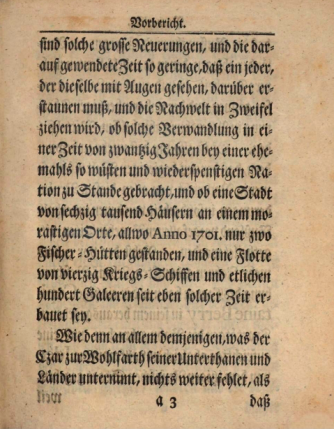 Vorbericht.
sind solche grosse Neuerungen, und die dar-
auf gewendete Zeit so geringe, daß ein jeder,
der dieselbe mit Augen gesehen, darüber er-
staunen muß, und die Nachwelt in Zweifel
ziehen wird, ob solche Verwandlung in ei-
ner Zeit von zwantzig Jahren bey einer ehe-
mahls so wüsten und wiederspenstigen Na-
tion zu Stande gebracht, und ob eine Stadt
von sechzig tausend Häusern an einem mo-
rastigen Orte, allwo Anno 1701. nur zwo
Fischer-Hütten gestanden, und eine Flotte
von vierzig Kriegs-Schiffen und etlichen
hundert Galeeren seit eben solcher Zeit er-
bauet sey.
Wie denn an allem demjenigen, was der
Czar zur Wohlfarth seiner Unterthanen und
Länder unternimt, nichts weiter fehlet, als
a 3 daß